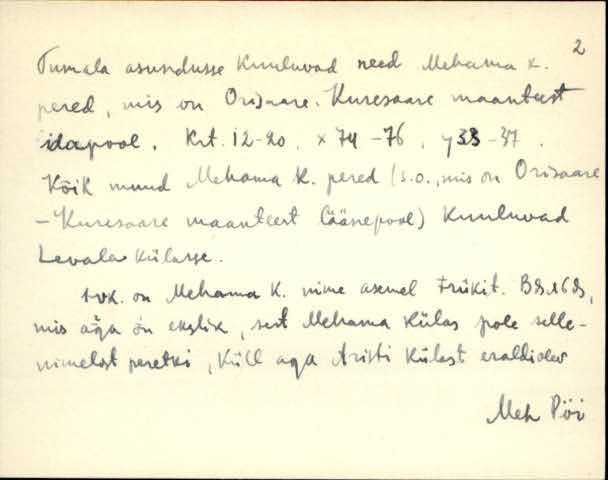 2
Tumala asundusse kuuluvad need Mehama k.
pered, mis on Orisaare-Kuresaare maanteest
idapool. Krt. 12-20. x 74 -76, y 33 -37.
Kõik muud Mehama k. pered (s.o., mis on Orisaare
-Kuresaare maanteest läänepool) kuuluvad
Levala külasse.
on Mehama k. nime asemel trükit.
mis aga on ekslik, sest Mehama külas pole selle-
nimelist peretki, küll aga Aristi külast eraldiolev
Meh Pöi